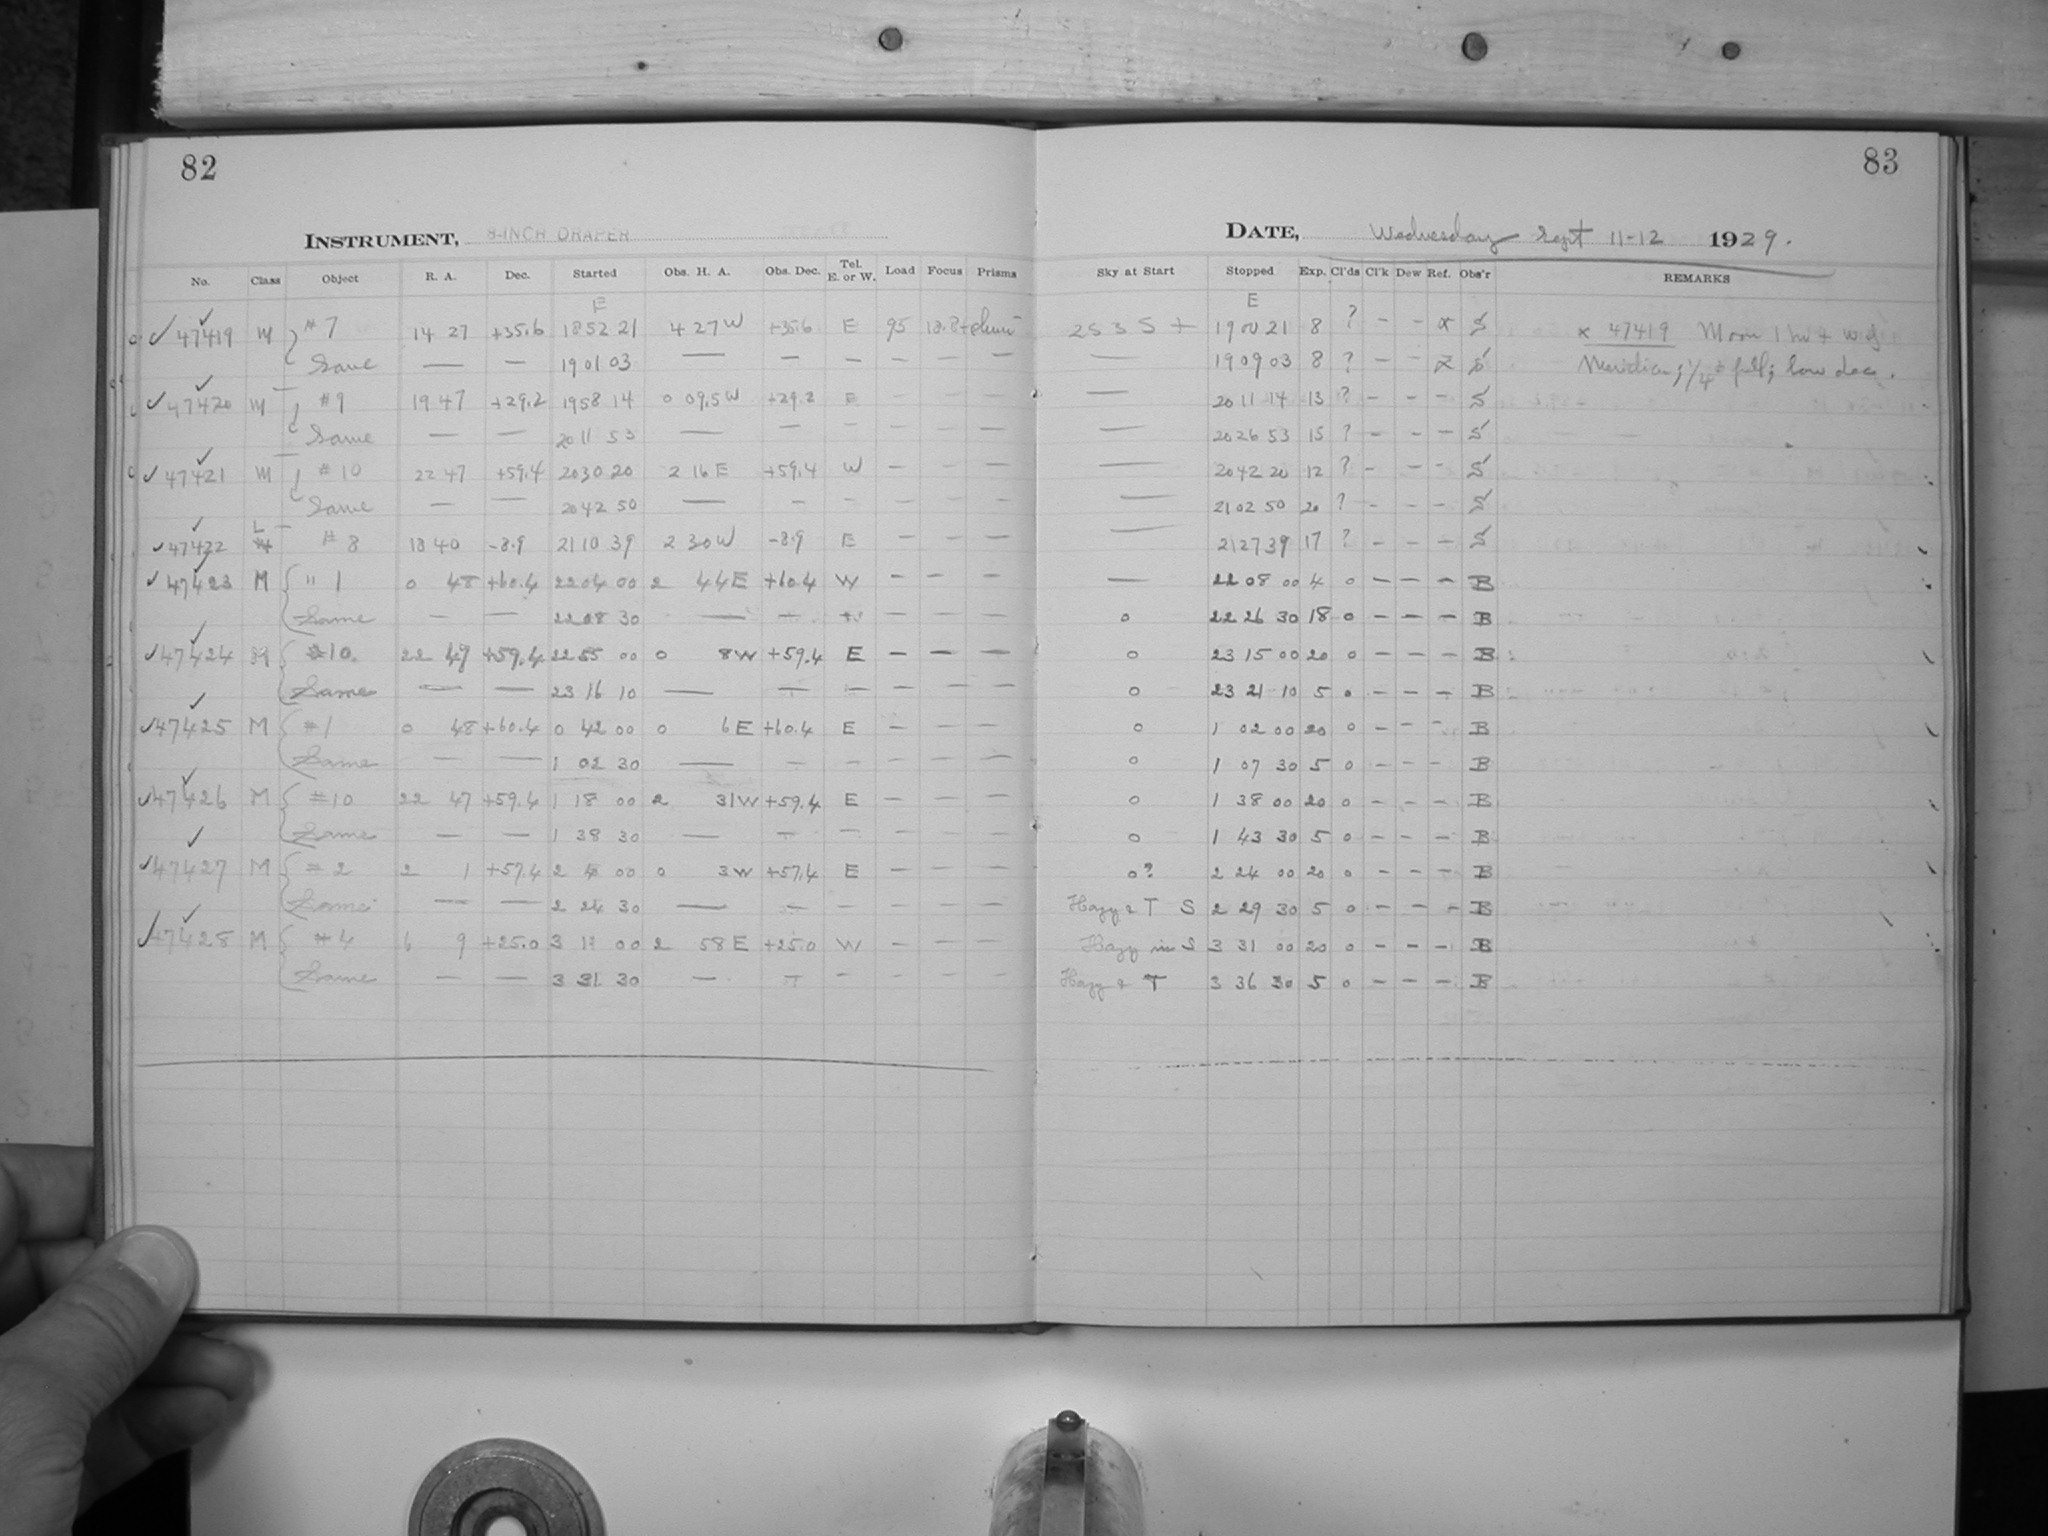 82
INSTRUMENT, 8-INCH DRAPER
No. Class Object R. A. Dec. Started Obs. H. A. Obs. Dec. Tel. E. or W. Load Focus Prisms
E
47419 M #7 14 27 +35.6 18 52 21 4 27 W +35.6 E 95
Same — — 19 01 03 — — — — — —
47420 M #9 19 47 +29.2 19 58 14 0 09.5 W +29.2 E — — —
Same — — 20 11 53 — — — — — —
47421 M #10 22 47 +59.4 20 30 20 2 16 E +59.4 W — — —
Same — — 20 42 50 — — — — — —
47422 L #8 18 40 -8.9 21 10 39 2 30 W -8.9 E — — —
47423 M " 1 0 48 +60.4 22 04 00 2 44 E +60.4 W — — —
Same — — 22 08 30 — — — — —
47424 M #10 22 49 +59.4 22 55 00 0 8 W +59.4 E — — —
Same — — 23 16 10 — — — — — —
47425 M #1 0 48 +60.4 0 42 00 0 6 E +60.4 E — — —
Same — — 1 02 30 — — — — — —
47426 M #10 22 47 +59.4 1 18 00 2 31 W +59.4 E — — —
Same — — 1 38 30 — — — — — —
47427 M #2 2 1 +57.4 2 4 00 0 3 W +57.4 E — — —
Same — — 2 24 30 — — — — — —
47428 M #4 6 9 +25.0 3 11 00 2 58 E +25.0 W — — —
Same — — 3 31 30 — — — — — —
83
DATE, Wednesday Sept 11-12 1929.
Sky at Start Stopped Exp. Cl'ds Cl'k Dew Ref. Obs'r REMARKS
E
2 S 3 S + 19 00 21 8 ? - - x S x 47419 Moon 1 hr + W of
— 19 09 03 8 ? - - x S Meridian; 1/4 ± full; low dec.
— 20 11 14 13 ? - - - S
— 20 26 53 15 ? - - - S
— 20 42 20 12 ? - - - S
— 21 02 50 20 ? - - - S
— 21 27 39 17 ? - - - S
— 22 08 00 4 0 - - - B
0 22 26 30 18 0 - - - B
0 23 15 00 20 0 - - - B
0 23 21 10 5 0 - - - B
0 1 02 00 20 0 - - - B
0 1 07 30 5 0 - - - B
0 1 38 00 20 0 - - - B
0 1 43 30 5 0 - - - B
0? 2 24 00 20 0 - - - B
Hazy & T S 2 29 30 5 0 - - - B
Hazy in S 3 31 00 20 0 - - - B
Hazy & T 3 36 30 5 0 - - - B